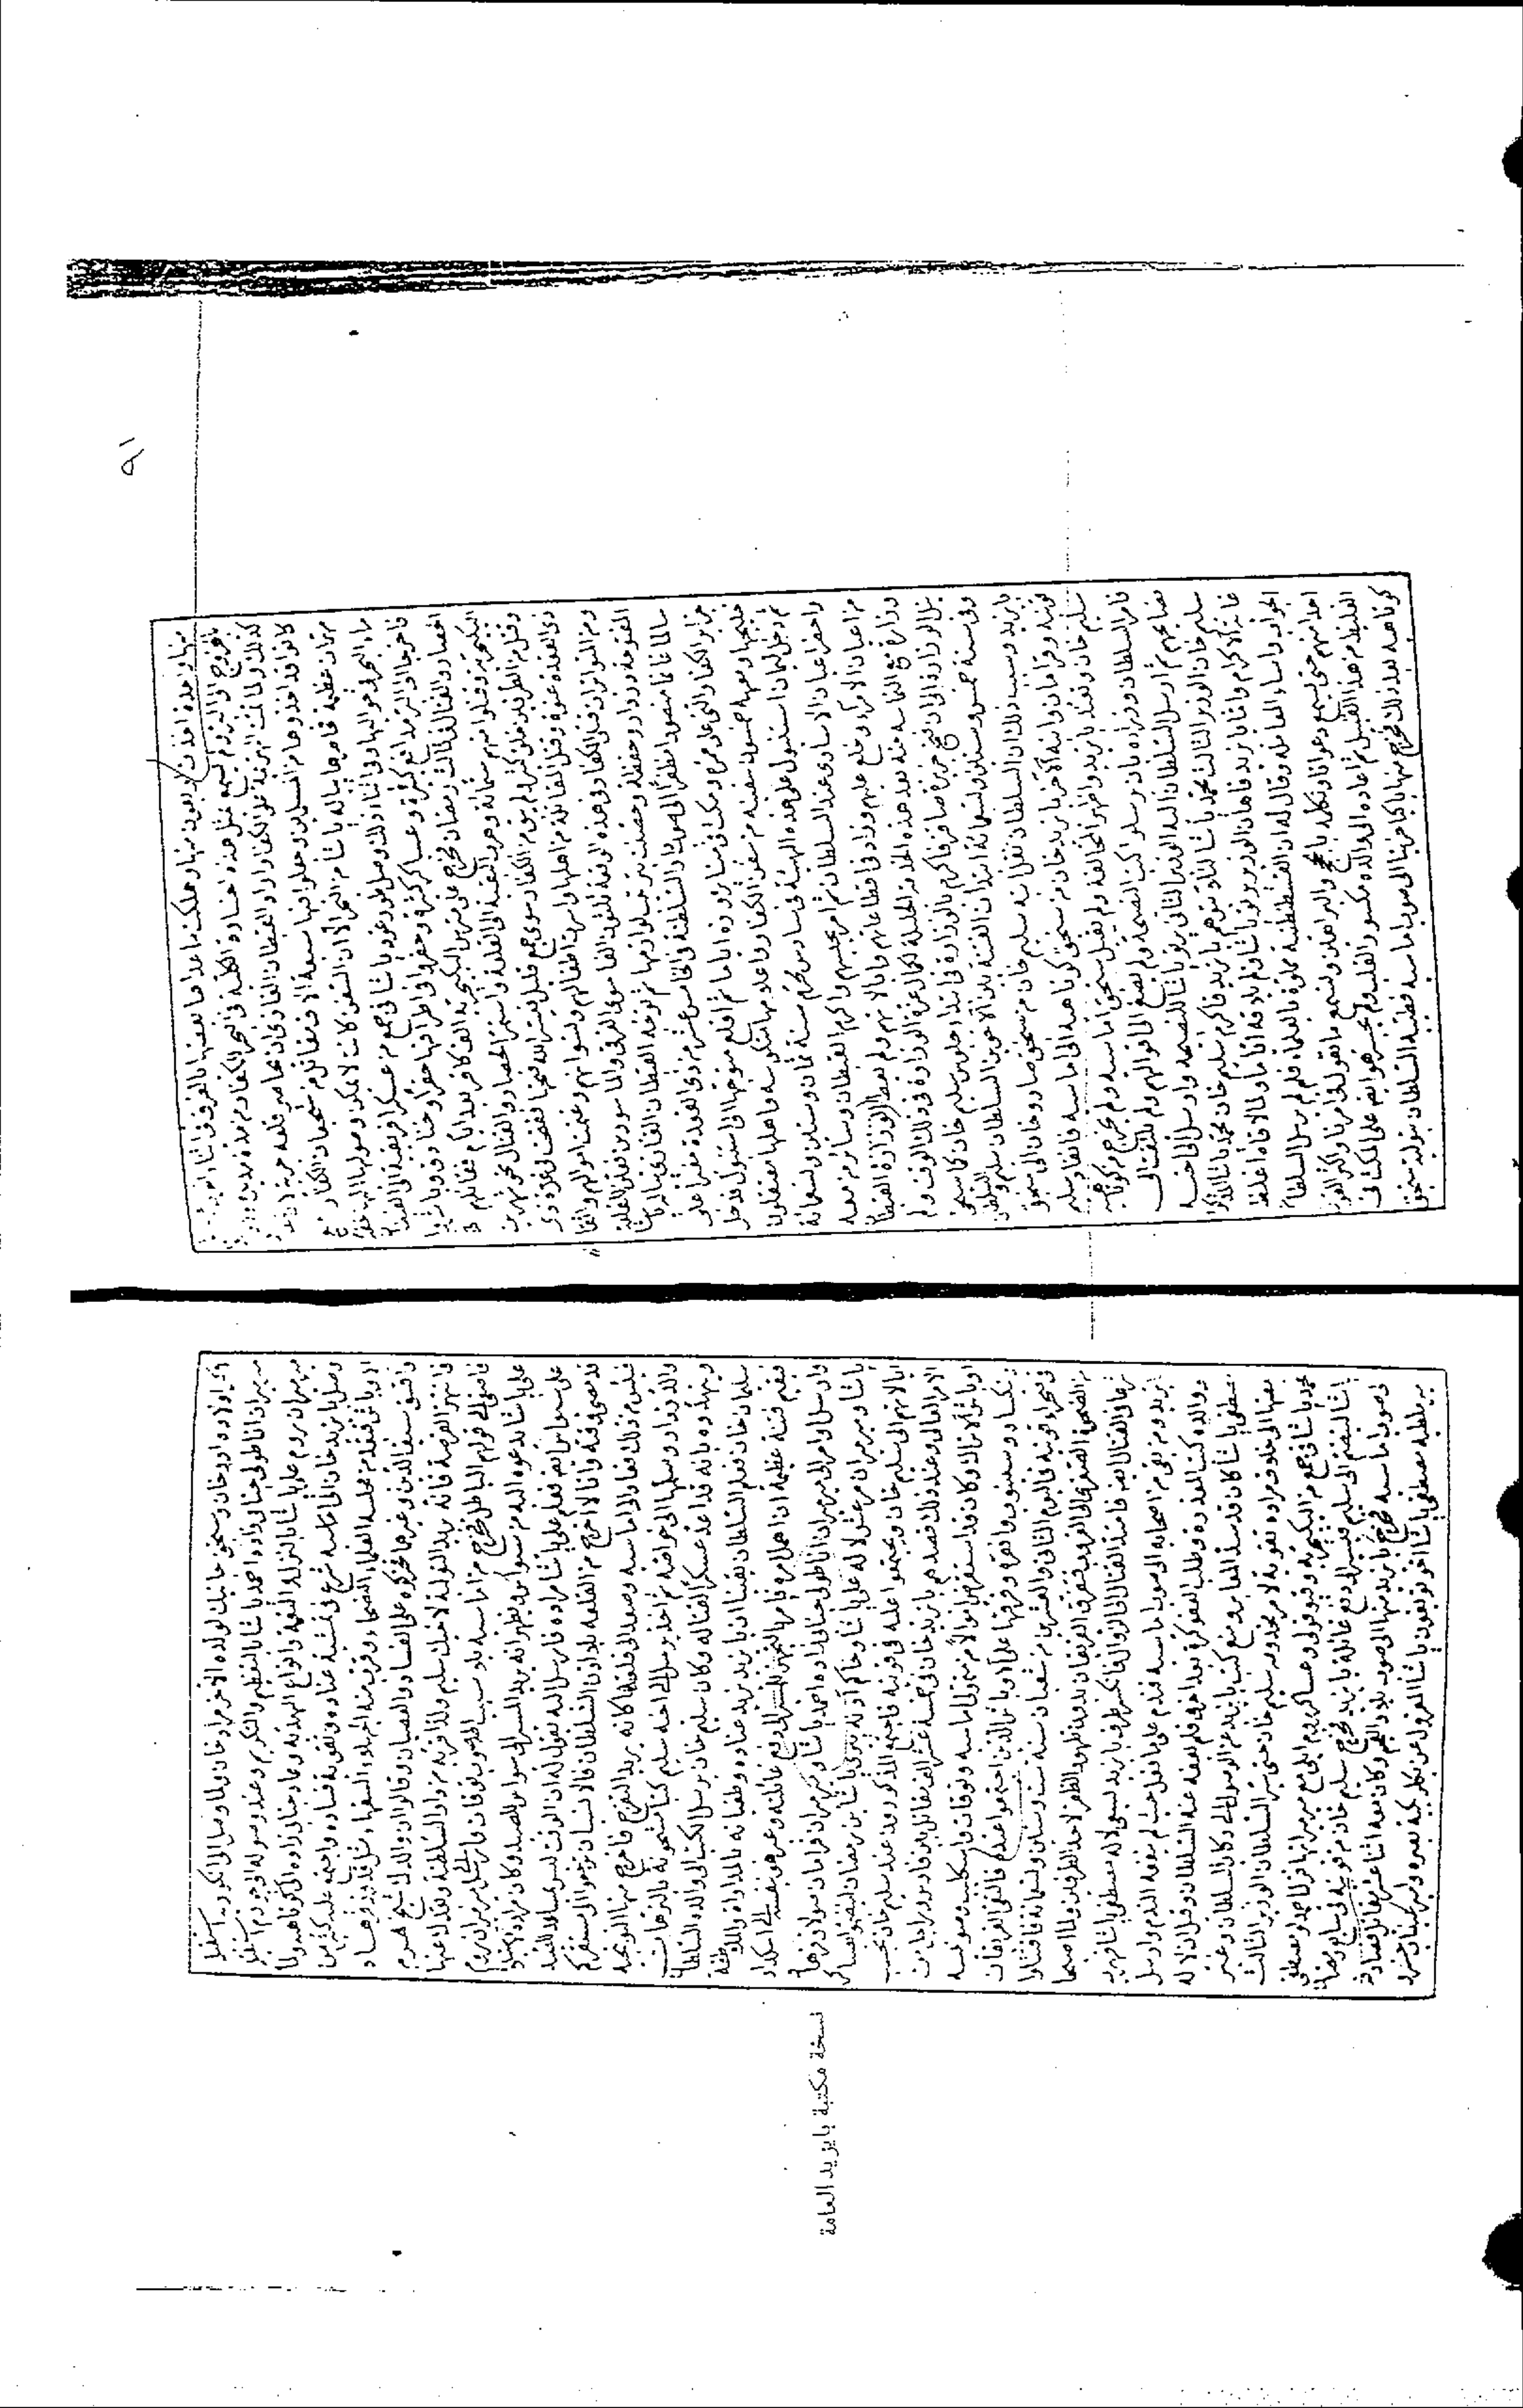 منها واحدة اخذت اربعون منها وهلكت ما عدا ما بعضها بالغرق في اثناء
بالخروج الى البر ولم يسمع مثل هذه الخسارة الكلية في البحر للكفار من مدة مديدة
كذلك ولما تمت الهزيمة على الكفار اراد القبطان الغازي ان يحاصر قلعة جربة
كانوا قد اخذوها من المسلمين وجعلوا فيها سبعة الاف مقاتل من شجعان الكفار مع
مهمات عظيمة فحاصرها پياله باشا من البحر الا ان السفن كانت لا يمكن وصولها اليها لقلة
ماء البحر في حواليها وفي اثناء ذلك وصل طورغود باشا في جمع من عسكر افريقية الى القبطان
فاخرجا الى البر مدافع كثيرة وعساكر كثيرة وحفروا في اطرافها حفرا وخنادق وباشروا
الحصار والقتال ففي ثالث رمضان خرج على متريس الينكجرية الف كافر فقاتلهم
الينكجرية وقتلوا منهم ستمائة وهرب البقية الى القلعة واستمر الحصار والقتال نحو شهرين
وقتل من الطرفين خلق كثير ولم يبق من الكفار سوى جمع قليل فيسر الله فتحها ففتحت في غرة ذي
ذي القعدة عنوة وقتل المقاتلة من اهلها واسرت اطفالهم ونسوانهم وغنمت اموالهم
ومن النوادر ان قتلى الكفار في هذه الوقعة ثلاثون الفا سوى الغرقى والماسورين فعين للقلعة
المفتوحة دزدار وحفظة وحصنت بترتيب لوازمها ثم توجه القبطان الغازي پياله باشا
سالما غانما منصورا مظفرا الى صوب دار السلطنة وفي الخامس عشر من ذي القعدة
جزاير الكفار التي على ومكث في مينا پروزه اياما ثم اقلع متوجها الى استنبول فدخل
خليجها ومعه خمسون سفينة من سفن الكفار واعلامها منكوسة واهلها معتقلون
ثم دخل استنبول على هذه الهيئة في سادس محرم سنة ثمان وستين وتسعمائة
واحضر اعيان الاسارى عند السلطان ثم امر بحبسهم واكرم القبطان وسائر من معه
من اعيان الامراء وخلع عليهم وزاد في اقطاعاتهم وايالاتهم ولم يعط الوزارة القبطان
وزارة مع التماسه منه بعد هذه الخدمة الجليلة لكمال عزة الوزارة في ذلك الوقت ولم
بذل الوزارة الى ان فتح جزيرة صاقز فاكرم بالوزارة في ابتداء جلوس سليم خان كما سيجئ
وفي سنة خمس وستين وتسعمائة ابتدات الفتنة بين الاخوين السلطان سليم والسلطان
بايزيد وسبب ذلك ان السلطان نقل ابنه سليم خان من سنجق صاروخان الى سنجق
قونية وقرامان وابنه الآخر بايزيد خان من سنجق كوتاهيه الى اماسيه فانقاد سليم
سليم خان وتعند بايزيد واظهر المخالفة ولم يقبل سنجق اماسيه ولم يخرج من كوتاهيه
فامر السلطان وزراءه بان يرسلوا كتب النصيحة ولم يصغ الى اقوالهم ولم يلتفت الى
نصايحهم ثم ارسل السلطان اليه الوزير الثاني پرتو پاشا للنصيحة وارسل الى اخيه
سليم خان الوزير الثالث محمد باشا لئلا يتوهم بايزيد فاكرم سليم خان محمد باشا المذكور
غاية الاكرام واما بايزيد فاهان الوزير پرتو پاشا ولم يلاقه اياما ولما لاقاه اغلظ
الجواب واساء المعاملة وقال له ان القسطنطينية مملوة بالعلماء فلم لم يرسل السلطان
احدا منهم حتى يسمع دعوانا ونتكلم بالحجج والبراهين ونسمع ما نقول في امرنا
الغليظ من هذا القبيل ثم اعاده الى والده مكسور القلب ولم
كوتاهيه بعد ذلك فخرج منها كارها الى صوب اماسيه فطيبه السلطان بتوليه سنجق
اكبر اولاده اورخان وسنجق جانيك لولده الاخر مراد خان ولما وصل الى انكوريه استقبله
ميرميران اناطولى جنابى زاده احمد باشا بالتعظيم والتكريم وعند وصوله الى چوروم استقبله
ميرميران روم على باشا بالنزل والنعمة وانواع الهدية وعاد جنابى زاده الى كوتاهيه ولما
وصل بايزيد خان الى اماسيه شرع في تمشية عناده وتلفيق فساده واجتمع عليه كثير من
الاوباش فبعد من مجلسه العلماء النصحاء وقرب منه الجهلاء السفهاء
واقسق سيف الدين وغيرها فحركوه على الفساد والعصيان وقالوا ان والدك شيخ هرم
فانتهز الفرصة فانه يريد التولية لاخيك سليم ولذا قربه من دار السلطنة وبعدك عنها
فاصغى الى قولهم الباطل فخرج من اماسيه بلا سبب الى صوب توقات فارسل الى ميرميران روم
على باشا يدعوه اليه من سيواس ويظهر انه يريد السير الى سيواس للصيد وكان مراده الاستيلاء
على سيواس ايضا فعلم على باشا مراده فارسل اليه يقول له ان الوقت ليس بملايم للصيد
قد مضى وقته وانا لا اخرج من القلعة بلا اذن السلطان فالانسب ان ترجعوا الى مستقركم
فيئس من ذلك فعاد الى اماسيه وصعد الى قلعتها كانه يريد التفرج فاخرج منها اليوبجيه
والذي زردار وسلمها الى خواصه ثم اخذ يرسل الى اخيه سليم كتبا مشحونة بالترهات
ويهدده بانه قد اعد عسكرا لقتاله وكان سليم خان يرسل الكتب الى والده السلطان
سليمان خان فعلم السلطان يقينا ان بايزيد يزيد عناده وطغيانه بالمداراة والملاطفة
فيقيم فتنة عظيمة ان اهمل امره فامر بالتجهيز للسفر لدفع غائلته وعبر هو بنفسه الى اسكدار
وارسل اوامر الى ميرميران اناطولى جنابى زاده احمد باشا وميرميران قرامان صولاق فرهاد
باشا وميرميران مرعش لالا على باشا وحاكم آدنه پيرى باشا بن رمضان ليضموا عساكر
ايالاتهم الى سليم خان ويجتمعوا عليه في قونيه فاجتمع المذكورون عند سليم خان بحسب
الامر العالى وعند ذلك قصدهم بايزيد خان في خمسة عشر الف مقاتل
اوباش الاتراك وكان قد استقرض اموالا من متمولى اماسيه وتوقات واسكليب ومرزيفون
نيكسار وسينوب وانقره وفرقها على اوباش الذين اجتمعوا عنده فالتقى الفريقان
في صحراء قونيه في اليوم الثاني والعشرين من شعبان سنة ست وستين وتسعمائة فاقتتلوا
من الضحوة الصغرى الى الغروب فتفرق الفريقان بدون ظهور الظفر لاحد الطرفين ولما اصبحا
شرعا في القتال ايضا فامتد القتال الى الزوال فانكسر طرف بايزيد لسعى لالا مصطفى باشا فهرب
بايزيد ومن بقى من اصحابه الى صوب اماسيه فندم على ما فعل حيث لم ينفعه الندم وارسل
ووالده كتب المعذرة وطلب العفو كرة بعد اخرى فلم يعف عنه السلطان وقيل ان لالا
مصطفى باشا كان قد سد المعابر ومنع كتب بايزيد عن الوصول الى وكان السلطان وعين
بعضها الى خلاف مراده تقوية لامر مخدومه سليم خان حتى سير السلطان الوزير الثالث
محمد باشا في جمع من الينكجرية وقبوقولى وعساكر روم ايلى مع ميرميرانها قزل احمدلو مصطفى
پاشا لينضم الى سليم فيسير الدفع غائلة بايزيد فخرج سليم خان من قونيه في سابع رمضان
الى صوب اماسيه فخرج بايزيد منها الى صوب بلاد العجم وكان معه اثنا عشر الف مقاتل فصادفه
ميرملطيه مصطفى باشا اخو قوجون پاشا المعزول عن بكلربكية بصره وامير عينتاب خسرو
نسخة مكتبة بايزيد العامة
٩١